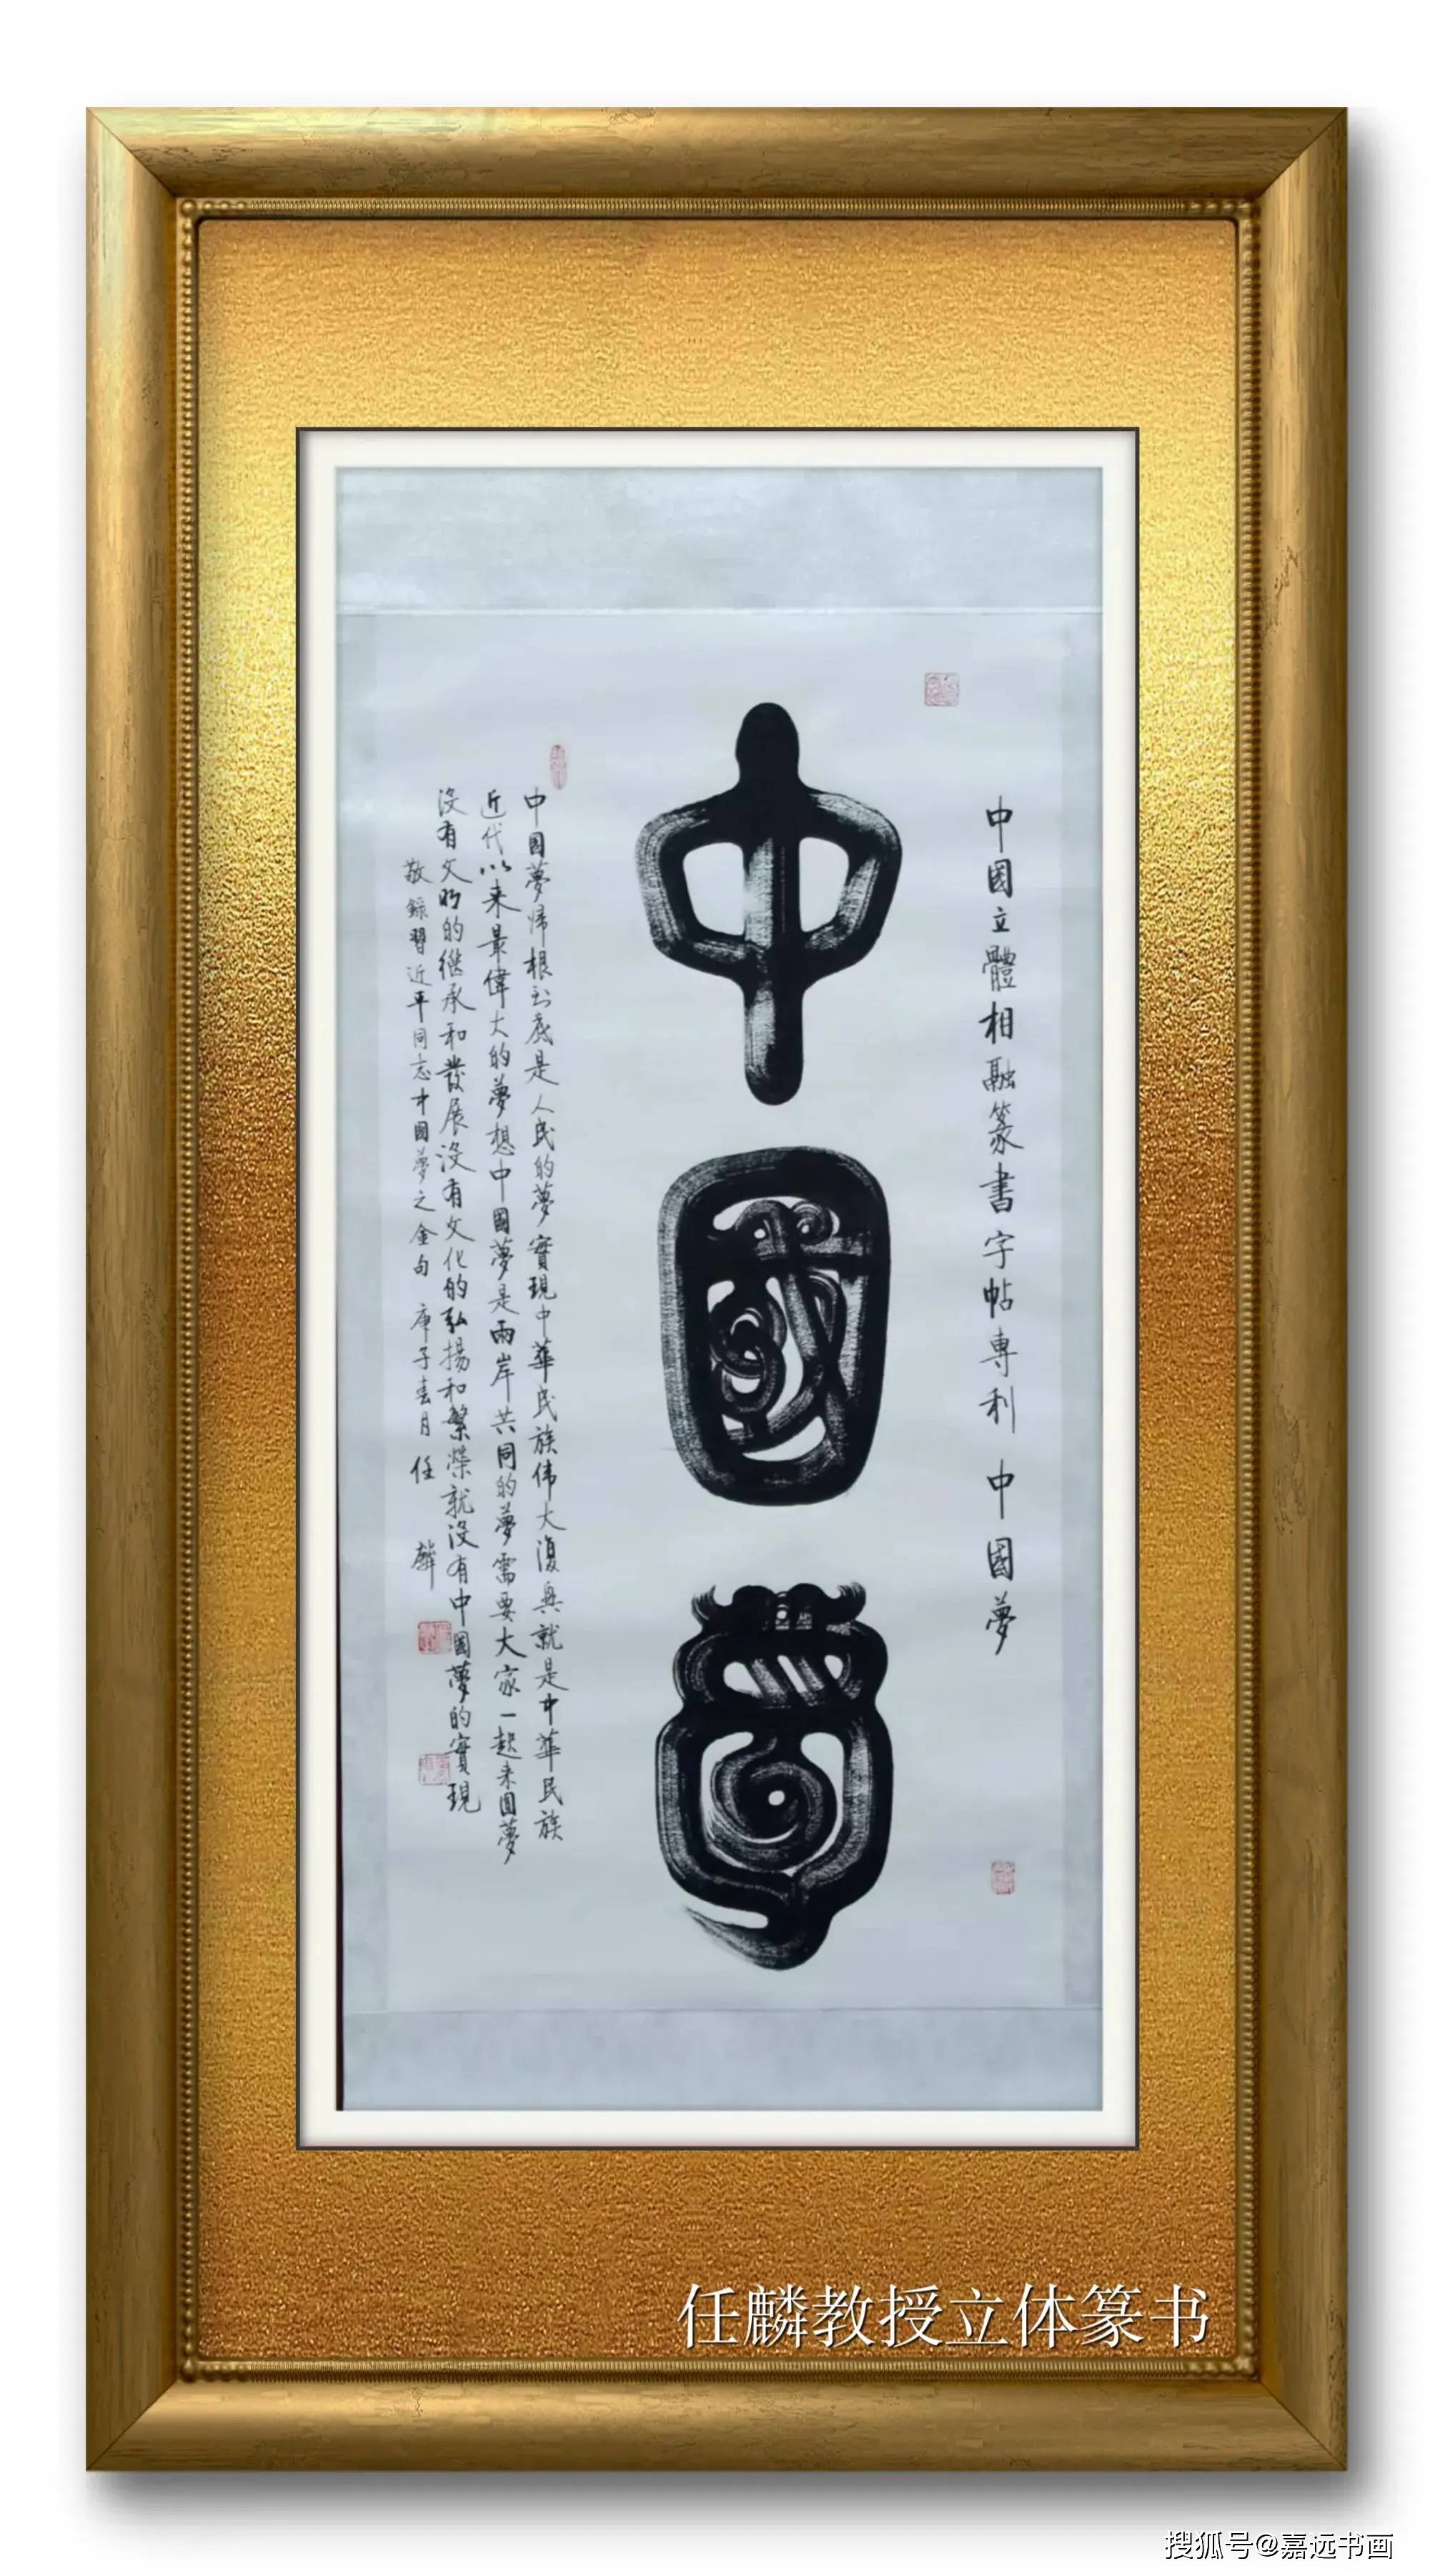 中國立體相融篆書字帖專利 中國夢
中國夢
中國夢歸根到底是人民的夢實現中華民族伟大復興就是中華民族
近代以来最偉大的夢想中國夢是兩岸共同的夢需要大家一起来圆夢
没有文明的继承和發展没有文化的弘揚和繁榮就没有中國夢的實現
敬錄習近平同志中國夢之金句 庚子春月 任麟
任麟教授立体篆书
搜狐号@嘉远书画